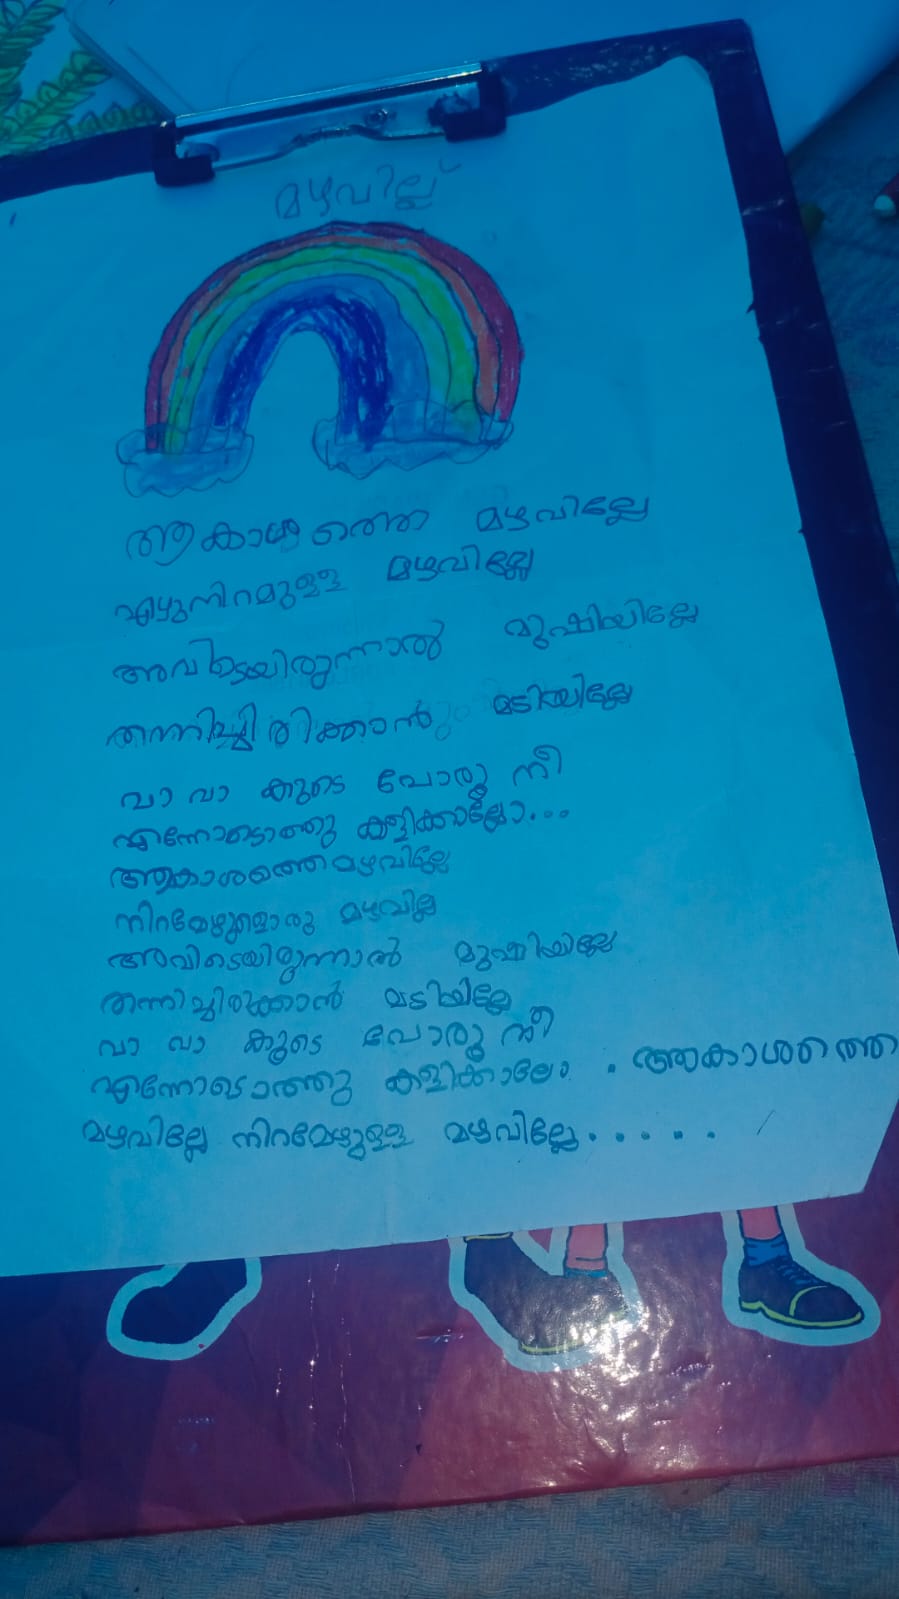 മഴവില്ല്
ആകാശത്തെ മഴവില്ലേ
ഏഴുനിറമുള്ള മഴവില്ലേ
അവിടെയിരുന്നാൽ മുഷിയില്ലേ
തന്നിച്ചിരിക്കാൻ മടിയില്ലേ
വാ വാ കൂടെ പോരൂ നീ
എന്നോടൊത്തു കളിക്കാല്ലോ...
ആകാശത്തെ മഴവില്ലേ
നിറമേഴുള്ളൊരു മഴവില്ല
അവിടെയിരുന്നാൽ മുഷിയില്ലേ
തന്നിച്ചിരുക്കാൻ മടിയില്ലേ
വാ വാ കൂടെ പോരൂ നീ
എന്നോടൊത്തു കളിക്കാലോ . ആകാശത്തെ
മഴവില്ലേ നിറമേഴുള്ള മഴവില്ലേ.....